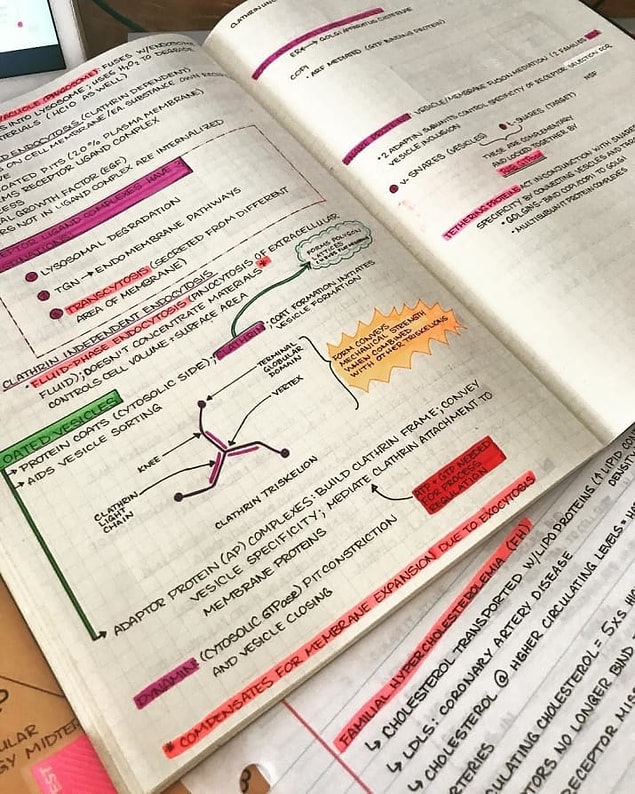 VACUOLE (PHAGOSOME) FUSES W/ENDOSOME
INTO LYSOSOME; USES H₂O₂ TO DEGRADE
MATERIALS (HClO AS WELL)
ENDOCYTOSIS (CLATHRIN DEPENDENT)
ON CELL MEMBRANE/EA. SUBSTANCE OWN
PITS (20% PLASMA MEMBRANE)
RECEPTOR LIGAND COMPLEX
GROWTH FACTOR (EGF)
NOT IN LIGAND COMPLEX ARE INTERNALIZED
LIGAND COMPLEXES HAVE 3
LYSOSOMAL DEGRADATION
TGN → ENDOMEMBRANE PATHWAYS
TRANSCYTOSIS (SECRETED FROM DIFFERENT
AREA OF MEMBRANE)
CLATHRIN INDEPENDENT ENDOCYTOSIS
* FLUID-PHASE ENDOCYTOSIS (PINOCYTOSIS OF EXTRACELLULAR
FLUID); DOESN'T CONCENTRATE MATERIALS *
CONTROLS CELL VOLUME + SURFACE AREA
FORMS POLYGON
LATTICES
COATED VESICLES
→ PROTEIN COATS (CYTOSOLIC SIDE); CLATHRIN; COAT FORMATION INITIATES
VESICLE FORMATION
→ AIDS VESICLE SORTING
TERMINAL
GLOBULAR
DOMAIN
VERTEX
KNEE
CLATHRIN
LIGHT
CHAIN
CLATHRIN TRISKELION
FORM CONVEYS
MECHANICAL STRENGTH
WHEN COMBINED
WITH OTHER TRISKELIONS
ADAPTOR PROTEIN (AP) COMPLEXES: BUILD CLATHRIN FRAME; CONVEY
VESICLE SPECIFICITY; MEDIATE CLATHRIN ATTACHMENT TO
MEMBRANE PROTEINS
GTP NEEDED
FOR PROCESS
REGULATION
DYNAMIN (CYTOSOLIC GTPase) PIT CONSTRICTION
AND VESICLE CLOSING
* COMPENSATES FOR MEMBRANE EXPANSION DUE TO EXOCYTOSIS
ER ← GOLGI APPARATUS
COPI: ARF MEDIATED (GTP BINDING PROTEIN)
: VESICLE/MEMBRANE FUSION MEDIATION (2 FAMILIES
* 2 ADAPTIN SUBUNITS CONTROL SPECIFICITY OF RECEPTOR SELECTION FOR
VESICLE INCLUSION
NSF
V-SNARES (VESICLES)
t-SNARES (TARGET)
THESE ARE COMPLEMENTARY
AND LOCKED TOGETHER BY
TETHERING PROTEINS ACT IN CONJUNCTION WITH
SPECIFICITY BY CONNECTING VESICLES AND
* GOLGINS- BIND TO GOLGI
* MULTISUBUNIT PROTEIN COMPLEXES
FAMILIAL HYPERCHOLESTEROLEMIA (FH)
↳ CHOLESTEROL TRANSPORTED W/LIPOPROTEINS (↑ LIPID
DENSITY
↳ LDLS: CORONARY ARTERY DISEASE
↳ CHOLESTEROL @ HIGHER CIRCULATING LEVELS =
ARTERIES
CHOLESTEROL = 5XS
NO LONGER BIND
RECEPTOR